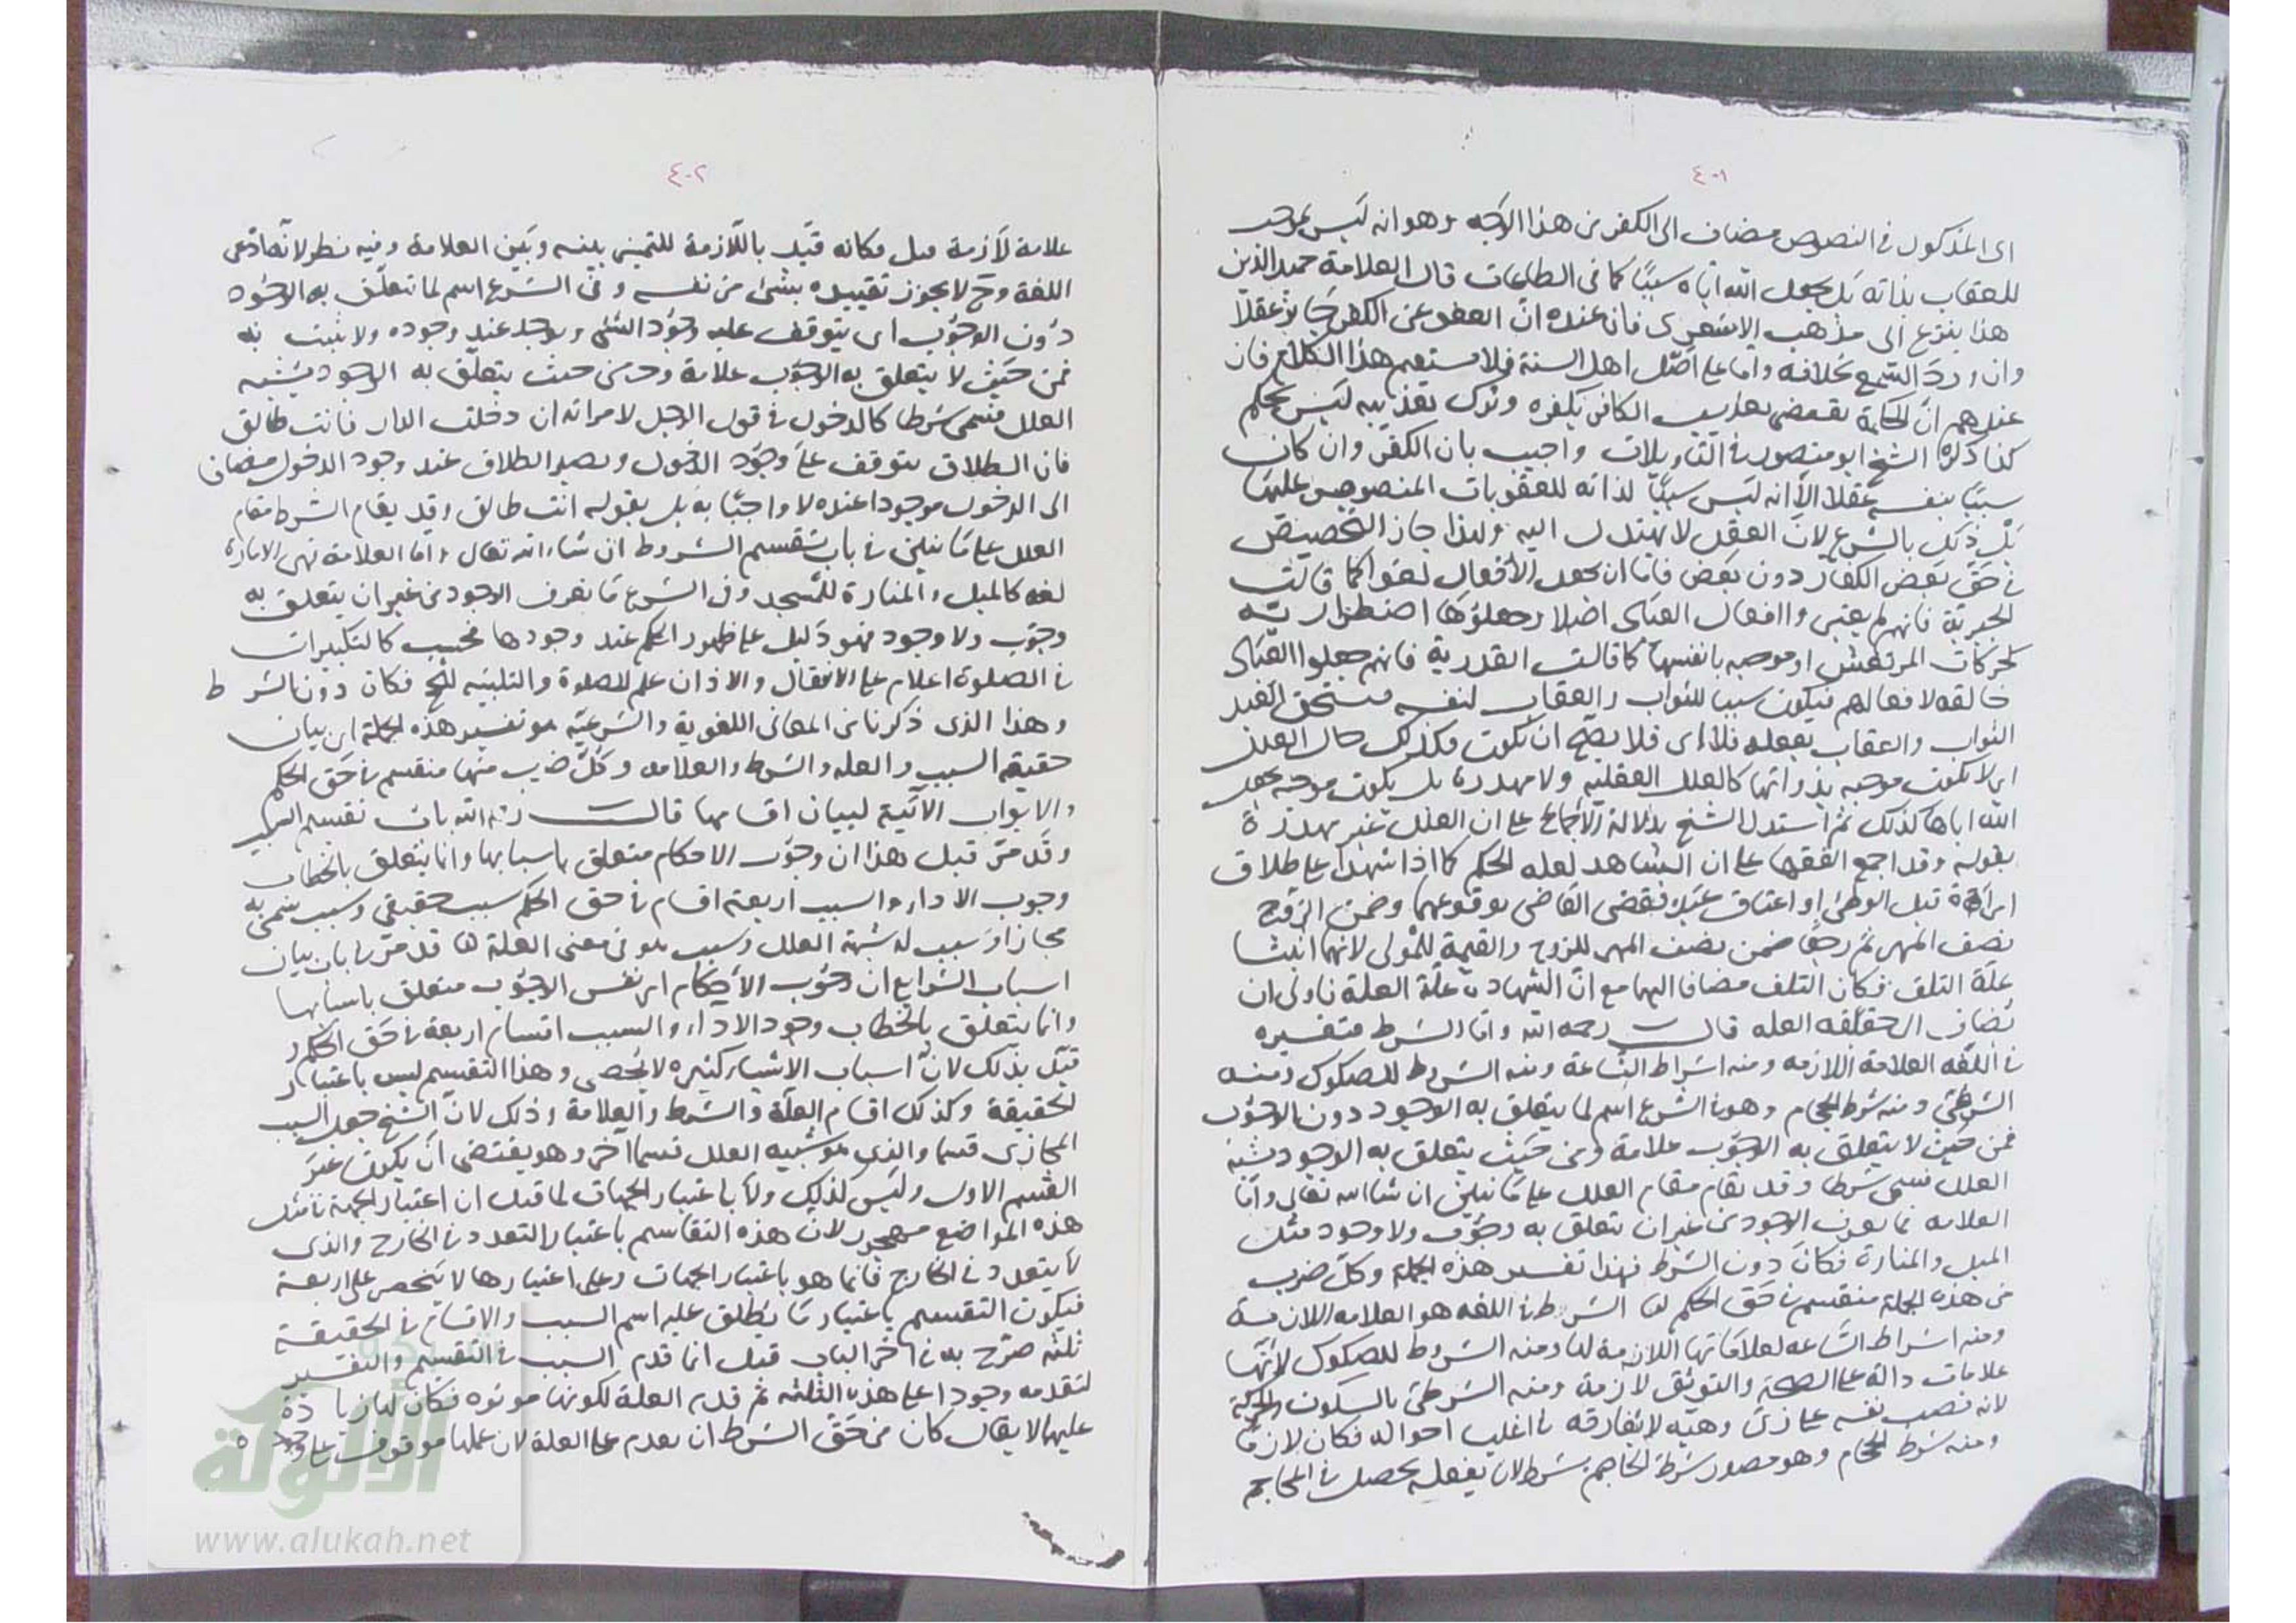 ٤٠١
اى المذكول فى النصوص مضاف الى الكفر من هذا الوجه وهو انه ليس بموجب
للعقاب بذاته بل بجعل الله اياه سببا كما فى الطاعات قال العلامة حميد الدين
هذا ينزع الى مذهب الاشعرى فان عنده ان العفو عن الكفر جايز عقلا
وان ورد السمع بخلافه واما على اصل اهل السنة فلا يستقيم هذا الكلام فان
عندهم ان الحكمة تقتضى تعذيب الكافر بكفره وترك تعذيبه ليس بحكمة
كذا ذكره الشيخ ابو منصور فى التاويلات واجيب بان الكفر وان كان
سببا بنفسه عقلا الا انه ليس سببا لذاته للعقوبات المنصوص عليها
بل ذلك بالشرع لان العقل لا يهتدى اليه ولهذا جاز التخصيص
فى حق بعض الكفار دون بعض فاما ان يجعل الافعال لغوا كما قالت
الجبرية فانهم لم يعتبروا افعال العباد اصلا وجعلوها اضطرارية
كحركات المرتعش او موجبه بانفسها كما قالت القدرية فانهم جعلوا العباد
خالقه لافعالهم فيكون سببا للثواب والعقاب لنفسه فيستحق العبد
الثواب والعقاب بفعله فلا اى فلا يصح ان يكون فكذلك حال العلل
اى لا يكون موجبه بذواتها كالعلل العقليه ولا مهدرة بل يكون موجبه بجعل
الله اياها كذلك ثم استدل الشيخ بدلالة الاجماع على ان العلل غير مهدرة
بقوله وقد اجمع الفقها على ان الشاهد لعله الحكم كما اذا شهدا على طلاق
امراة قبل الوطئ او اعتاق عبد فقضى القاضى بوقوعهما وضمن الزوج
نصف المهر ثم رجعا ضمن نصف المهر للزوج والقيمة للمولى لانهما اثبتا
علة التلف فكان التلف مضافا اليهما مع ان الشهادة علة العلة فاولى ان
يضاف الى حقيقه العله قال رحمه الله واما الشرط فتفسيره
فى اللغه العلامة اللازمه ومنه اشراط الساعة ومنه الشروط للصكوك ومنه
الشرطى ومنه شرط الحجام وهو فى الشرع اسم لما يتعلق به الوجود دون الوجوب
فمن حيث لا يتعلق به الوجوب علامة ومن حيث يتعلق به الوجود يشبه
العلل فسمى شرطا وقد يقام مقام العلل على ما نبين ان شا الله تعالى واما
العلامه فما يعرف الوجود من غير ان يتعلق به وجوب ولا وجود مثل
الميل والمنارة فكان دون الشرط فهذا تفسير هذه الجملة وكل ضرب
من هذه الجملة منقسم فى حق الحكم الشرط فى اللغه هو العلامه اللازمة
ومنه اشراط الساعه لعلاماتها اللازمة لها ومنه الشروط للصكوك لانها
علامات دالة على الصحة والتوثق لازمة ومنه الشرطى بالسكون والحركة
لانه نصب نفسه على زى وهيئة لا يفارقه فى اغلب احواله فكان لازما
ومنه شرط الحجام وهو مصدر شرط الحاجم يشرط لان بفعله يحصل فى المحاجم
٤٠٢
علامة لازمة قيل وكانه قيد باللازمة للتمييز بينه وبين العلامة وفيه نظر لانه ادعى
اللغة وح لا يجوز تقييده بشئ من نفسه وفى الشرع اسم لما تعلق به الوجود
دون الوجوب اى يتوقف عليه وجود الشئ ويوجد عند وجوده ولا يثبت به
فمن حيث لا يتعلق به الوجوب علامة ومن حيث يتعلق به الوجود يشبه
العلل فسمى شرطا كالدخول فى قول الرجل لامراته ان دخلت الدار فانت طالق
فان الطلاق يتوقف على وجود الدخول ويصير الطلاق عند وجود الدخول مضافا
الى الدخول موجودا عنده لا واجبا به بل بقوله انت طالق وقد يقام الشرط مقام
العلل على ما نبين فى باب تقسيم الشروط ان شاء الله تعالى واما العلامة فهى الامارة
لغه كالميل والمنارة للمسجد وفى الشرع ما يعرف الوجود من غير ان يتعلق به
وجوب ولا وجود فهو دليل على ظهور الحكم عند وجودها فحسب كالتكبيرات
فى الصلوة اعلام على الانتقال والاذان علم للصلوة والتلبيه للحج فكان دون الشرط
وهذا الذى ذكرنا من المعانى اللغوية والشرعيه هو تفسير هذه الجملة اى بيان
حقيقه السبب والعله والشرط والعلامه وكل ضرب منها منقسم فى حق الحكم
والابواب الآتية لبيان اقسامها قال رحمه الله باب تقسيم السبب
وقد مر قبل هذا ان وجوب الاحكام متعلق باسبابها وانما يتعلق بالخطاب
وجوب الاداء والسبب اربعة اقسام فى حق الحكم سبب حقيقى وسبب سمى به
مجازا وسبب له شبهة العلل وسبب هو فى معنى العلة قد مر فى باب بيان
اسباب الشرايع ان وجوب الاحكام اى نفس الوجوب متعلق باسبابها
وانما يتعلق بالخطاب وجود الاداء والسبب اقسام اربعة فى حق الحكم و
قيل بذلك لان اسباب الاشياء كثيره لا تحصى وهذا التقسيم ليس باعتبار
الحقيقة وكذلك اقسام العلة والشرط والعلامة وذلك لان الشيخ جعل السبب
المجازى قسما والذى هو شبيه العلل قسما آخر وهو يقتضى ان يكون غير
القسم الاول وليس كذلك ولا باعتبار الجهات لما قيل ان اعتبار الجهة فى مثل
هذه المواضع مهجور لان هذه التقاسيم باعتبار التعدد فى الخارج والذى
لا يتعدد فى الخارج فانما هو باعتبار الجهات وعلى اعتبارها لا ينحصر على اربعة
فيكون التقسيم باعتبار ما يطلق عليه اسم السبب والاقسام فى الحقيقة
ثلثه صرح به فى آخر الباب قيل انما قدم السبب فى التقسيم والتفسير
لتقدمه وجودا على هذه الثلثه ثم قدم العلة لكونها موثره فكان لها زيادة
عليهما لا يقال كان من حق الشرط ان يقدم على العلة لان عملها موقوف على وجوده
الألوكة
www.alukah.net